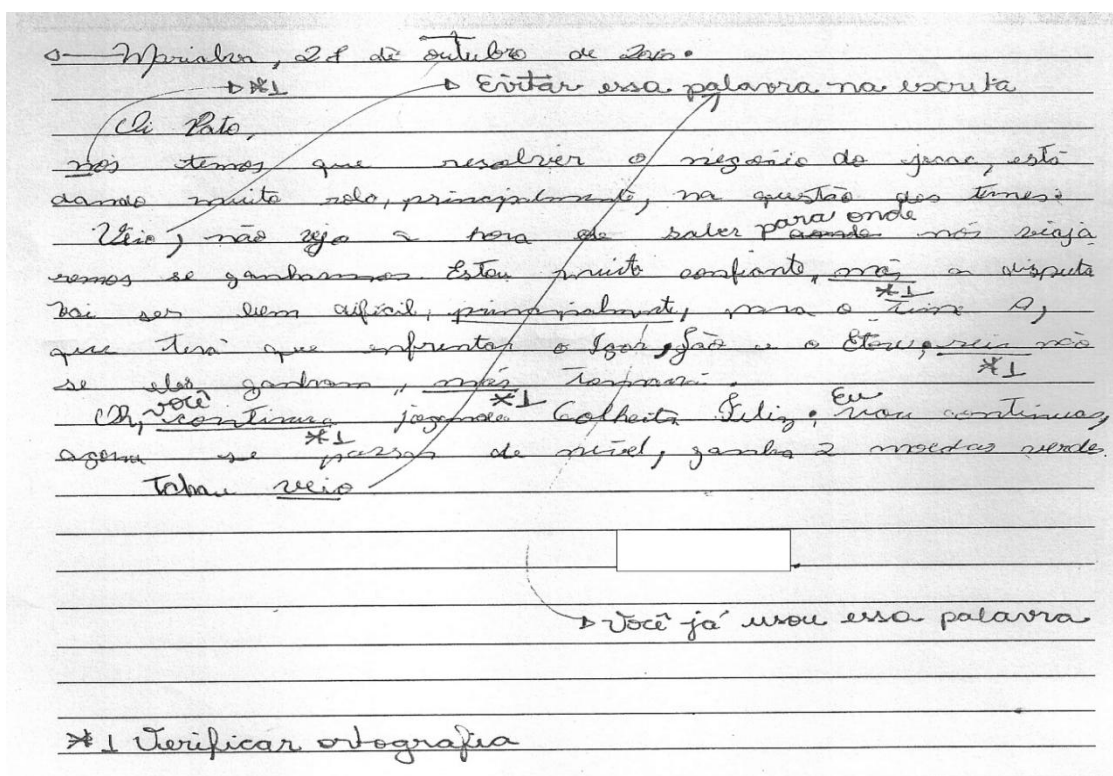 Marialva, 21 de outubro de 2010.
*1 Evitar essa palavra na escrita
Oi Pato,
nos temos que resolver o negocio do jecac, está
dando muito rolo, principalmente, na questão dos times.
Véio, não vejo a hora de saber para onde aonde nós viaja
remos se ganharmos. Estou muito confiante, mas a disputa
*1
vai ser bem dificil, principalmente, para o time A,
que terá que enfrentar o Igor, João e o
*1
se eles ganham, mas
*1
Oh, você continua jogando Colheita Feliz. Eu vou continuar,
*1
agora se passar de nível, ganha 2 moedas verdes.
Tchau veio
Você já usou essa palavra
*1 Verificar ortografia